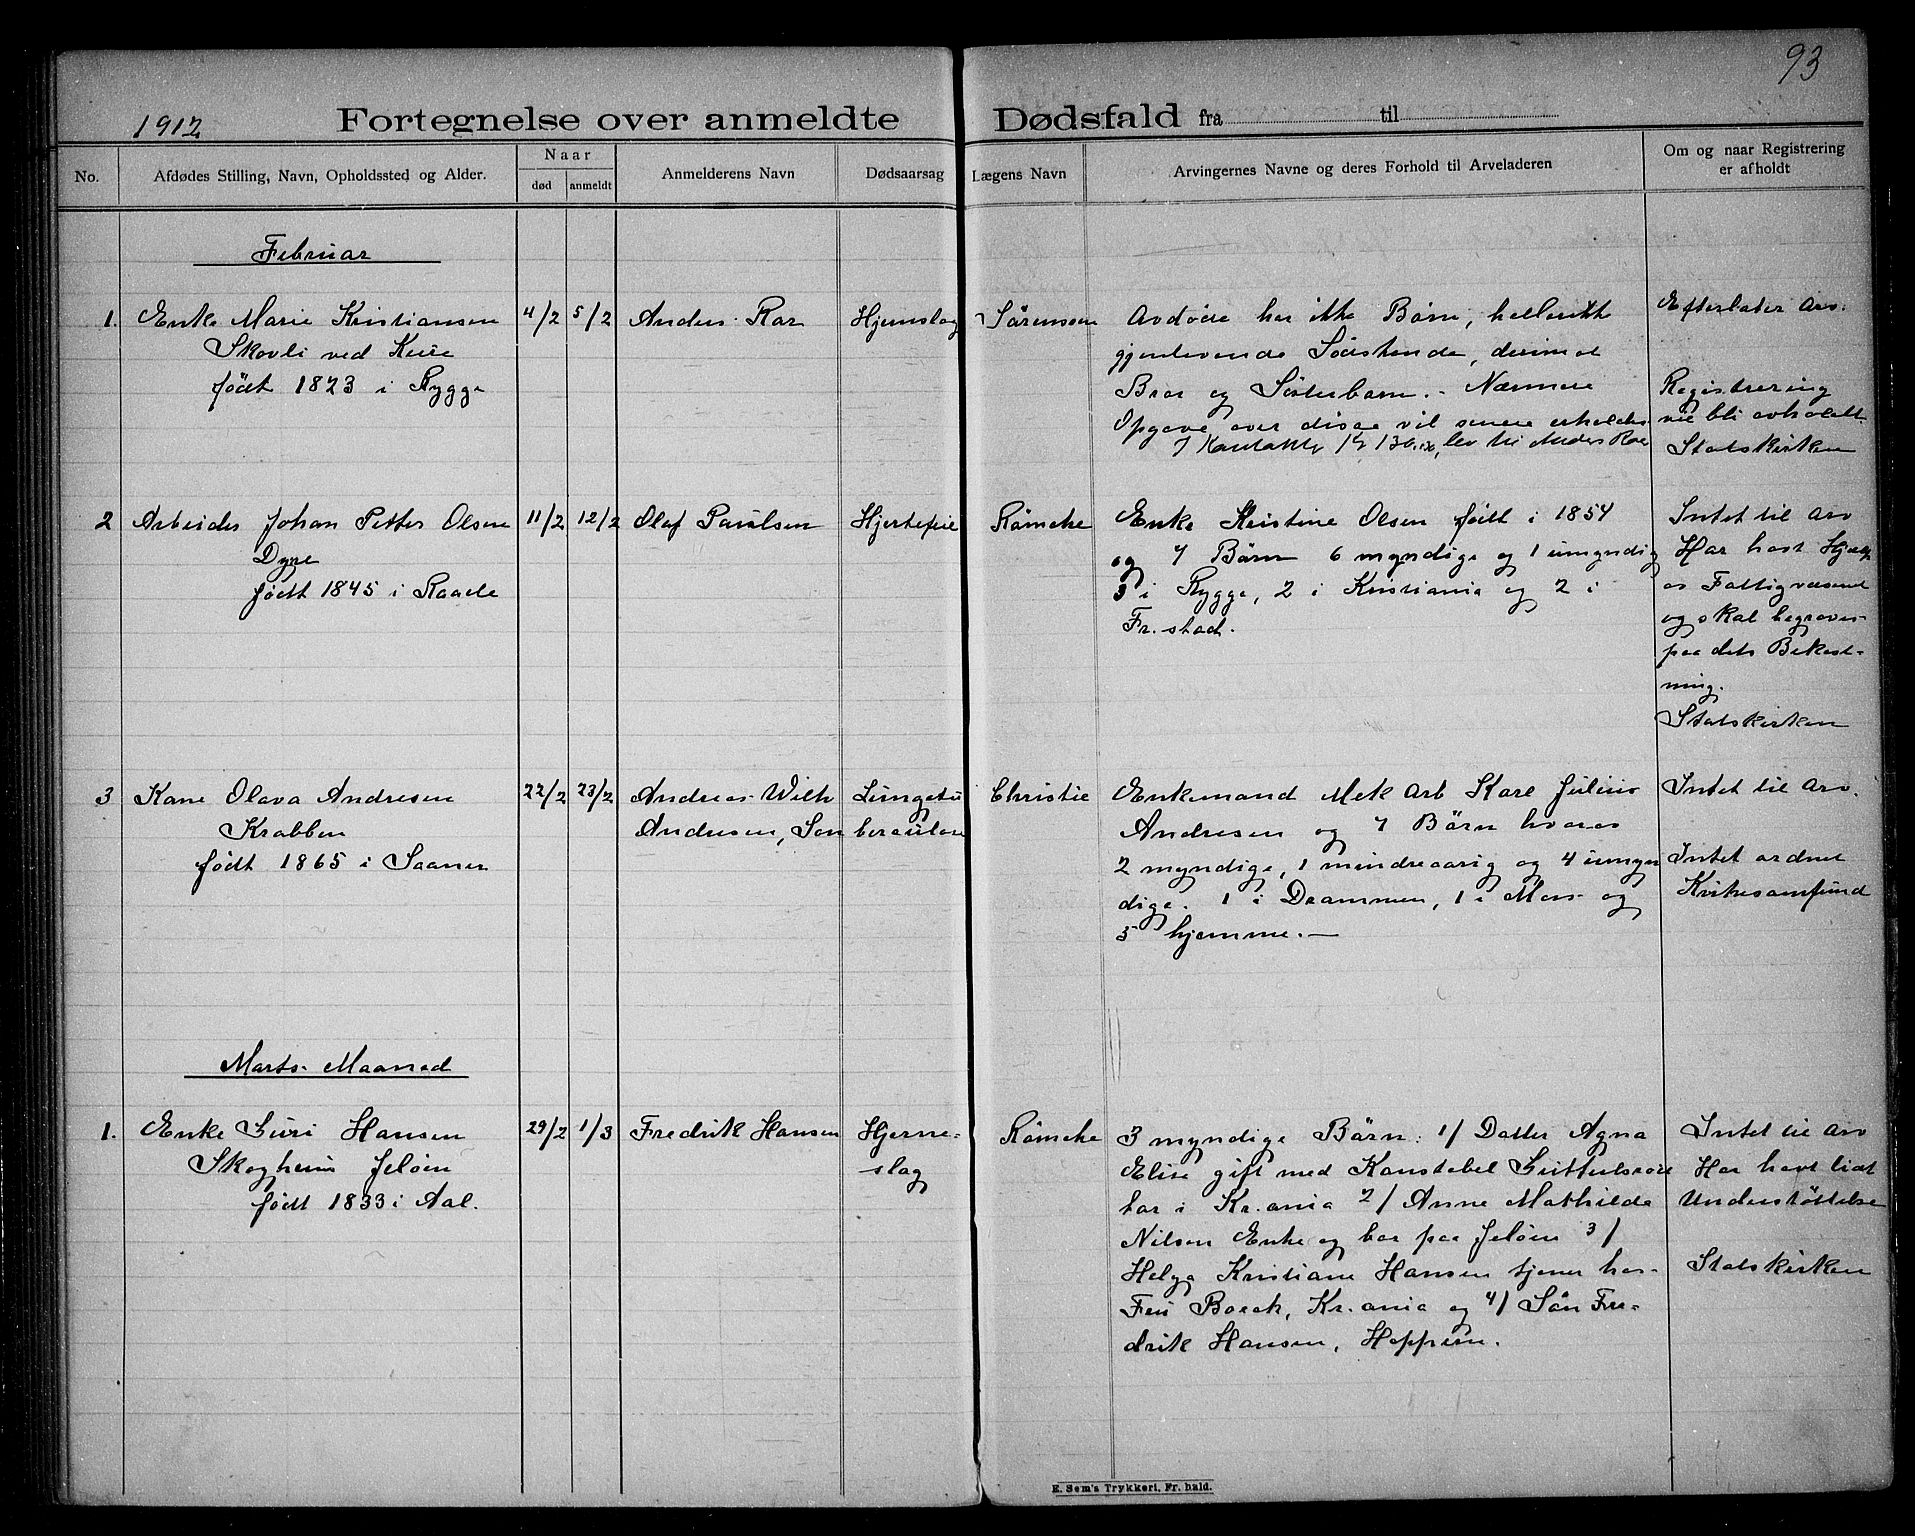 93
1912 Fortegnelse over anmeldte Dødsfald fra til
No. Afdødes Stilling, Navn, Opholdssted og Alder. Naar død anmeldt Anmelderens Navn Dødsaarsag Lægens Navn Arvingernes Navne og deres Forhold til Arveladeren Om og naar Registrering er afholdt
Februar
1. Enke Marie Kristiansen
Skovli ved Kure
født 1823 i Rygge
4/2 5/2 Anders Rør Hjernslag Sørenssen
Avdøde har ikke Børn, heller ikke
gjenlevende Sødskende, derimot
Bror og Søsterbarn. - Nærmere
Opgave over disse vil senere erholdes
lev. til Anders Rør
Efterlater arv.
Registrering
vil bli avholdt.
Statskirken
2 Arbeider Johan Petter Olsen
Dyre
født 1845 i Raade
11/2 12/2 Olaf Paulsen Hjertefeil Rømcke
Enke Kristine Olsen født i 1854
og 7 Børn 6 myndige og 1 umyndig
3 i Rygge, 2 i Kristiania og 2 i
Fr.stad.
Intet til arv
Har hat Hjælp
av Fattigvæsenet
og skal begraves
paa dets Bekost-
ning.
Statskirken
3 Kone Olava Andresen
Krabben
født 1865 i Saaner
22/2 23/2 Andreas Wilh
Andresen, Søn
Lungetu
berculose
Christie
Enkemand Mek Arb Karl Julius
Andresen og 7 Børn hvorav
2 myndige, 1 mindreaarig og 4 umyn
dige. 1 i Drammen, 1 i Moss og
5 hjemme. -
Intet til arv.
Intet ordnet
Kirkesamfund
Marts Maaned
1. Enke Guri Hansen
Skogheim Jeløen
født 1833 i Aal.
29/2 1/3 Fredrik Hansen Hjerne-
slag
Rømcke
3 myndige Børn: 1/ Datter Agna
Elise gift med Konstabel
bor i Kr.ania 2/ Anne Mathilde
Nilsen Enke og bor paa Jeløen 3/
Helga Kristiane Hansen tjener hos
Fru Borch, Kr.ania og 4/ Søn Fre-
drik Hansen, Hoppern.
Intet til arv
Har havt litt
Understøttelse
Statskirken
E. Sem's Trykkeri, Fr.hald.